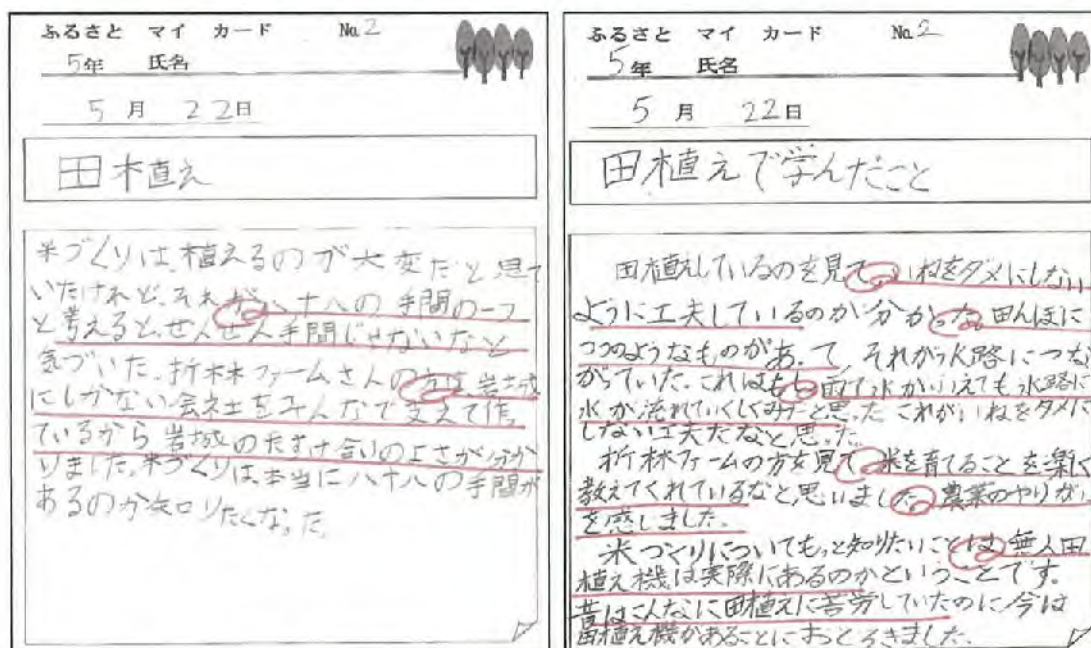 ふるさと マイ カード No.2
5年 氏名
5月 22日
田植え
米づくりは、植えるのが大変だと思って
いたけれど、それが、八十八の手間の一つ
と考えると、ぜんぜん手間じゃないなと
気づいた。折林ファームさんの方は、岩城
にしかない会社をみんなで支えて作っ
ているから岩城の助け合いのよさが分か
りました。米づくりは本当に八十八の手間が
あるのか知りたくなった。
ふるさと マイ カード No.2
5年 氏名
5月 22日
田植えで学んだこと
田植えしているのを見て、いねをダメにしない
ように工夫しているのが分かった。田んぼに
つつのようなものがあって、それが水路につな
がっていた。これはもし雨で水がふえても水路に
水が流れていくしくみだと思った。これがいねをダメに
しない工夫だなと思った。
折林ファームの方を見て、米を育てることを楽しく
教えてくれているなと思いました。農業のやりがい
を感じました。
米づくりについてもっと知りたいことは、無人田
植え機は実際にあるのかということです。
昔はこんなに田植えに苦労していたのに今は
田植え機があることにおどろきました。